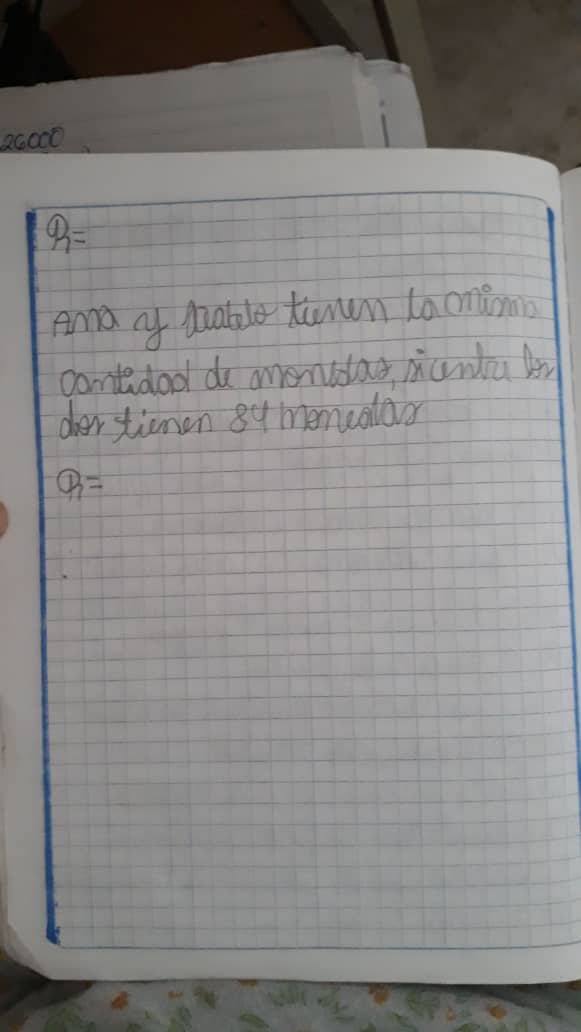 26000
R=
Ana y Pablo tienen la misma
cantidad de monedas, si entre los
dos tienen 84 monedas
R=